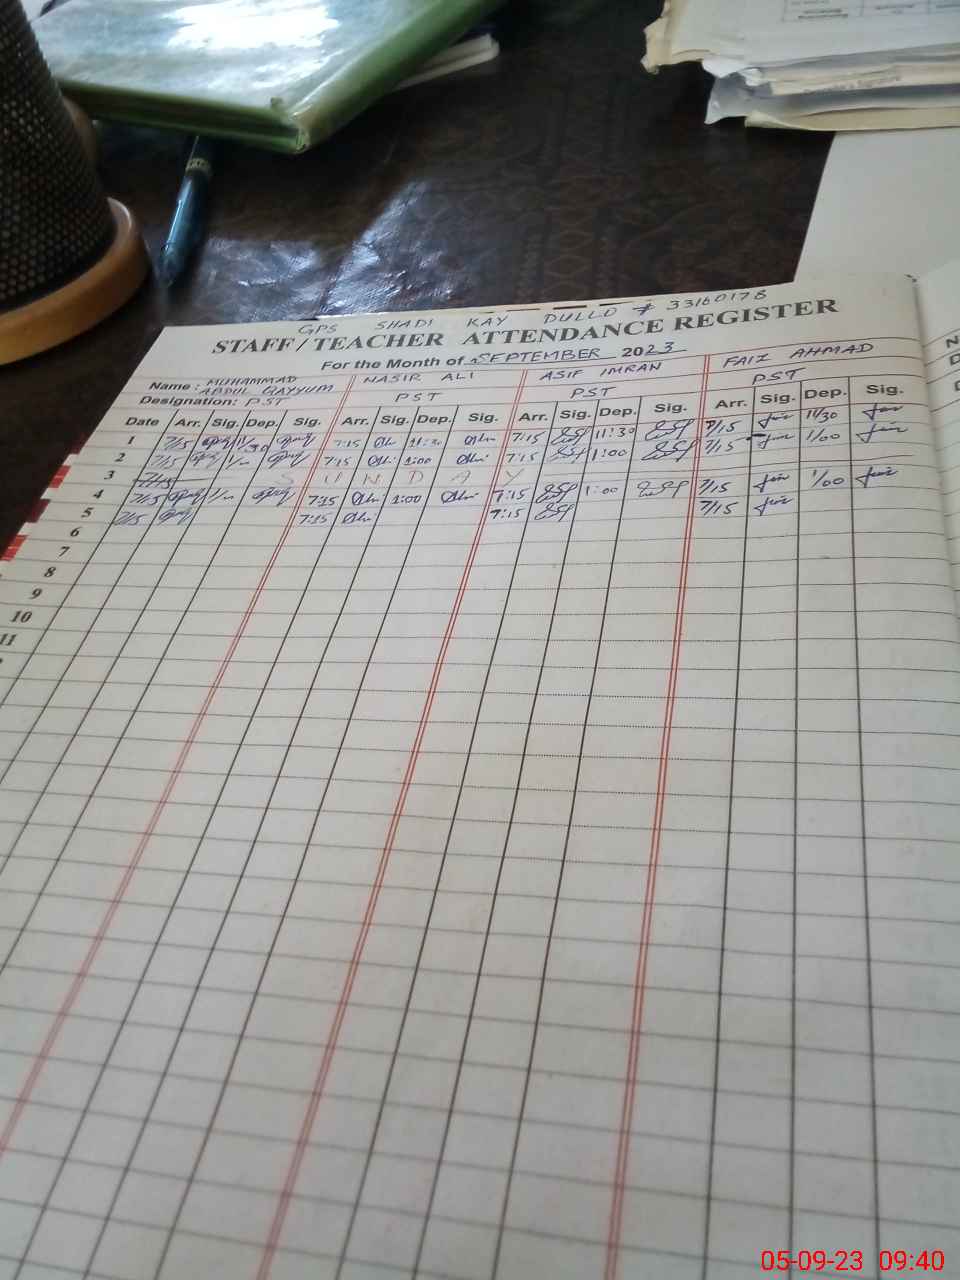 GPS SHADI KAY DULLO # 33160178
STAFF/TEACHER ATTENDANCE REGISTER
For the Month of SEPTEMBER 2023
Name: MUHAMMAD ABDUL QAYYUM NASIR ALI ASIF IMRAN FAIZ AHMAD
Designation: PST PST PST PST
Date Arr. Sig. Dep. Sig. Arr. Sig. Dep. Sig. Arr. Sig. Dep. Sig. Arr. Sig. Dep. Sig.
1 7/15 11/30 7:15 11:30 7:15 11:30 7/15 11/30
2 7/15 7:15 1:00 7:15 1:00 7/15 1/00
3 S U N D A Y
4 7/15 7:15 1:00 7:15 1:00 7/15 1/00
5 7/15 7:15 7:15 7/15
6
7
8
9
10
11
05-09-23 09:40